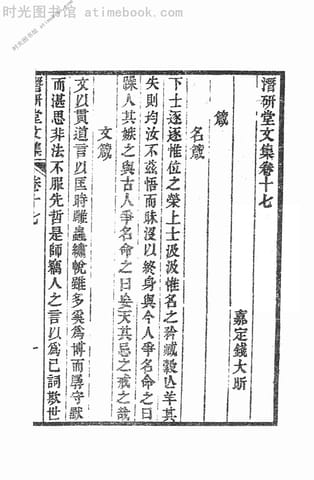 时光图书馆 www.atimebook.com
时光图书馆 atimebook.com
潛研堂文集卷十七
嘉定錢大昕
箴
名箴
下士逐逐惟位之榮上士汲汲惟名之矜臧穀亾羊其
失則均汝不茲悟而昧沒以終身與今人爭名命之曰
躁人其嫉之與古人爭名命之曰妄天其忌之戒之哉
文箴
文以貫道言以匡時雕蟲繡帨雖多奚爲博而寡守默
而湛思非法不服先哲是師竊人之言以爲己詞欺世
潛研堂文集
卷十七
一